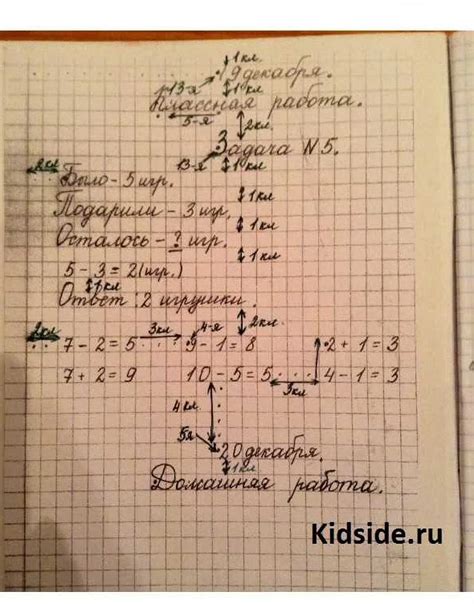 1 кл.
19 декабря.
13-я 1 кл
Классная работа.
5-я 2 кл.
Задача N 5.
13-я 1 кл.
2 кл
Было - 5 игр.
1 кл
Подарили - 3 игр.
1 кл
Осталось - ? игр.
1 кл
5 - 3 = 2 (игр.)
1 кл
Ответ: 2 игрушки.
2 кл. 3 кл 4-я 2 кл.
7 - 2 = 5 9 - 1 = 8 2 + 1 = 3
7 + 2 = 9 10 - 5 = 5 4 - 1 = 3
3 кл
4 кл
5я
20 декабря.
1 кл
Домашняя работа.
Kidside.ru